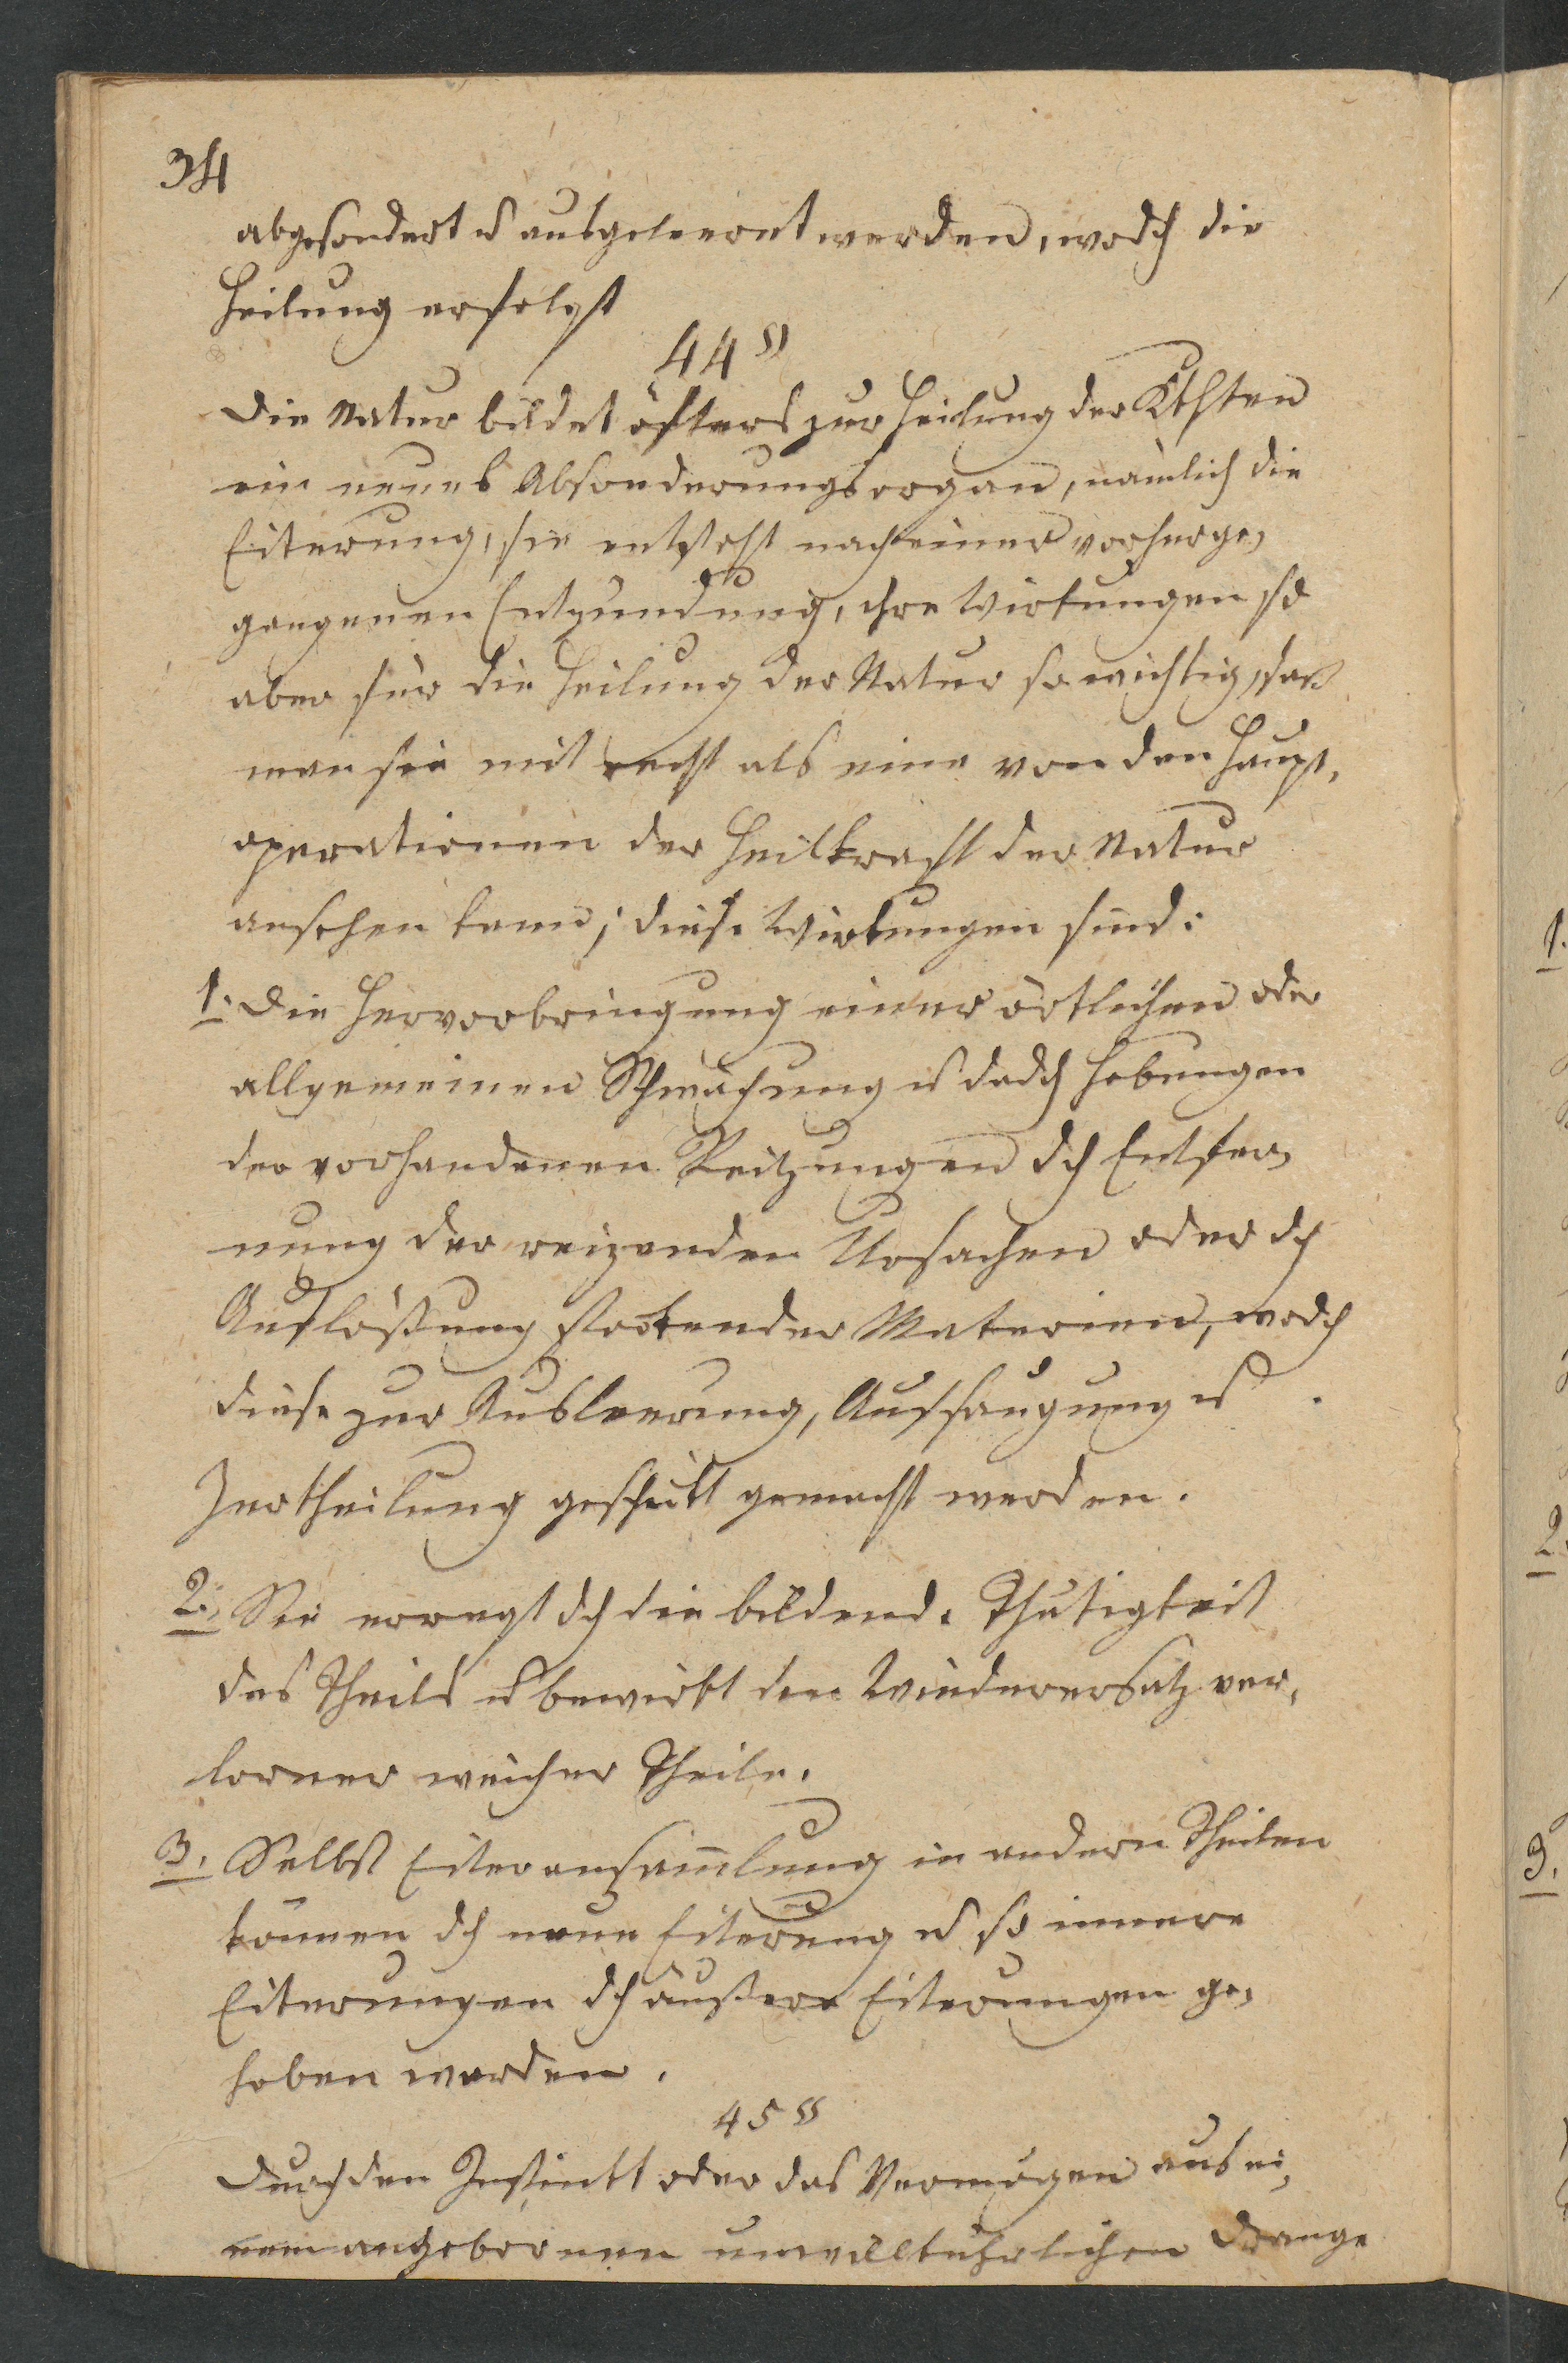 34
abgesondert u ausgeleeret werden, wodch die
Heilung erfolgt
44§
Die Natur bildet öfters zur Heilung der Kkhten
ein neues Absonderungsorgan, nämlich die
Eiterung, sie entsteht nach einer vorherge,
gangenen Entzündung, ihre Wirkungen sd
aber für die Heilung der Natur so wichtig, daß
man sie mit recht als eine von den Haupt,
operationen der Heilkraft der Natur
ansehen kann; diese Wirkungen sind:
1. Die Hervorbringung einer örtlichen oder
allgemeinen Schwächung u dadch Hebungen
der vorhandenen Reitzungen dch Entfer,
nung der reizenden Ursachen oder dch
Auflößung stockender Materien, wodch
diese zur Ausleerung, Aufsaugung u
Zertheilung geschikt gemacht werden.
2. Sie erregt dch die bildende Thätigkeit
des Theils u bewirkt den Wiederersatz ver,
lorner weicher Theile.
3. Selbst Eiteransam̅lung in andern Theilen
können dch neue Eiterung u so innere
Eiterungen dch äußere Eiterungen ge,
hoben werden.
45§
Durch den Instinkt oder das Vermögen aus ei,
nem angebornen unwillkührlichen Drange
1.
2.
3.